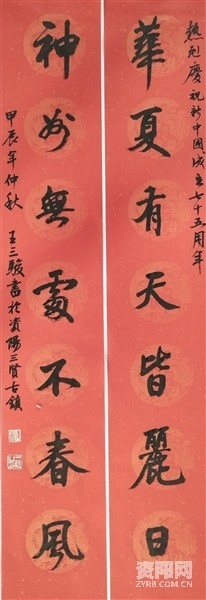 热烈慶祝新中國成立七十五周年
華夏有天皆麗日
神州無處不春風
甲辰年仲秋
王三駿書於資陽三賢古鎮
资阳网
ZYRB.COM.CN